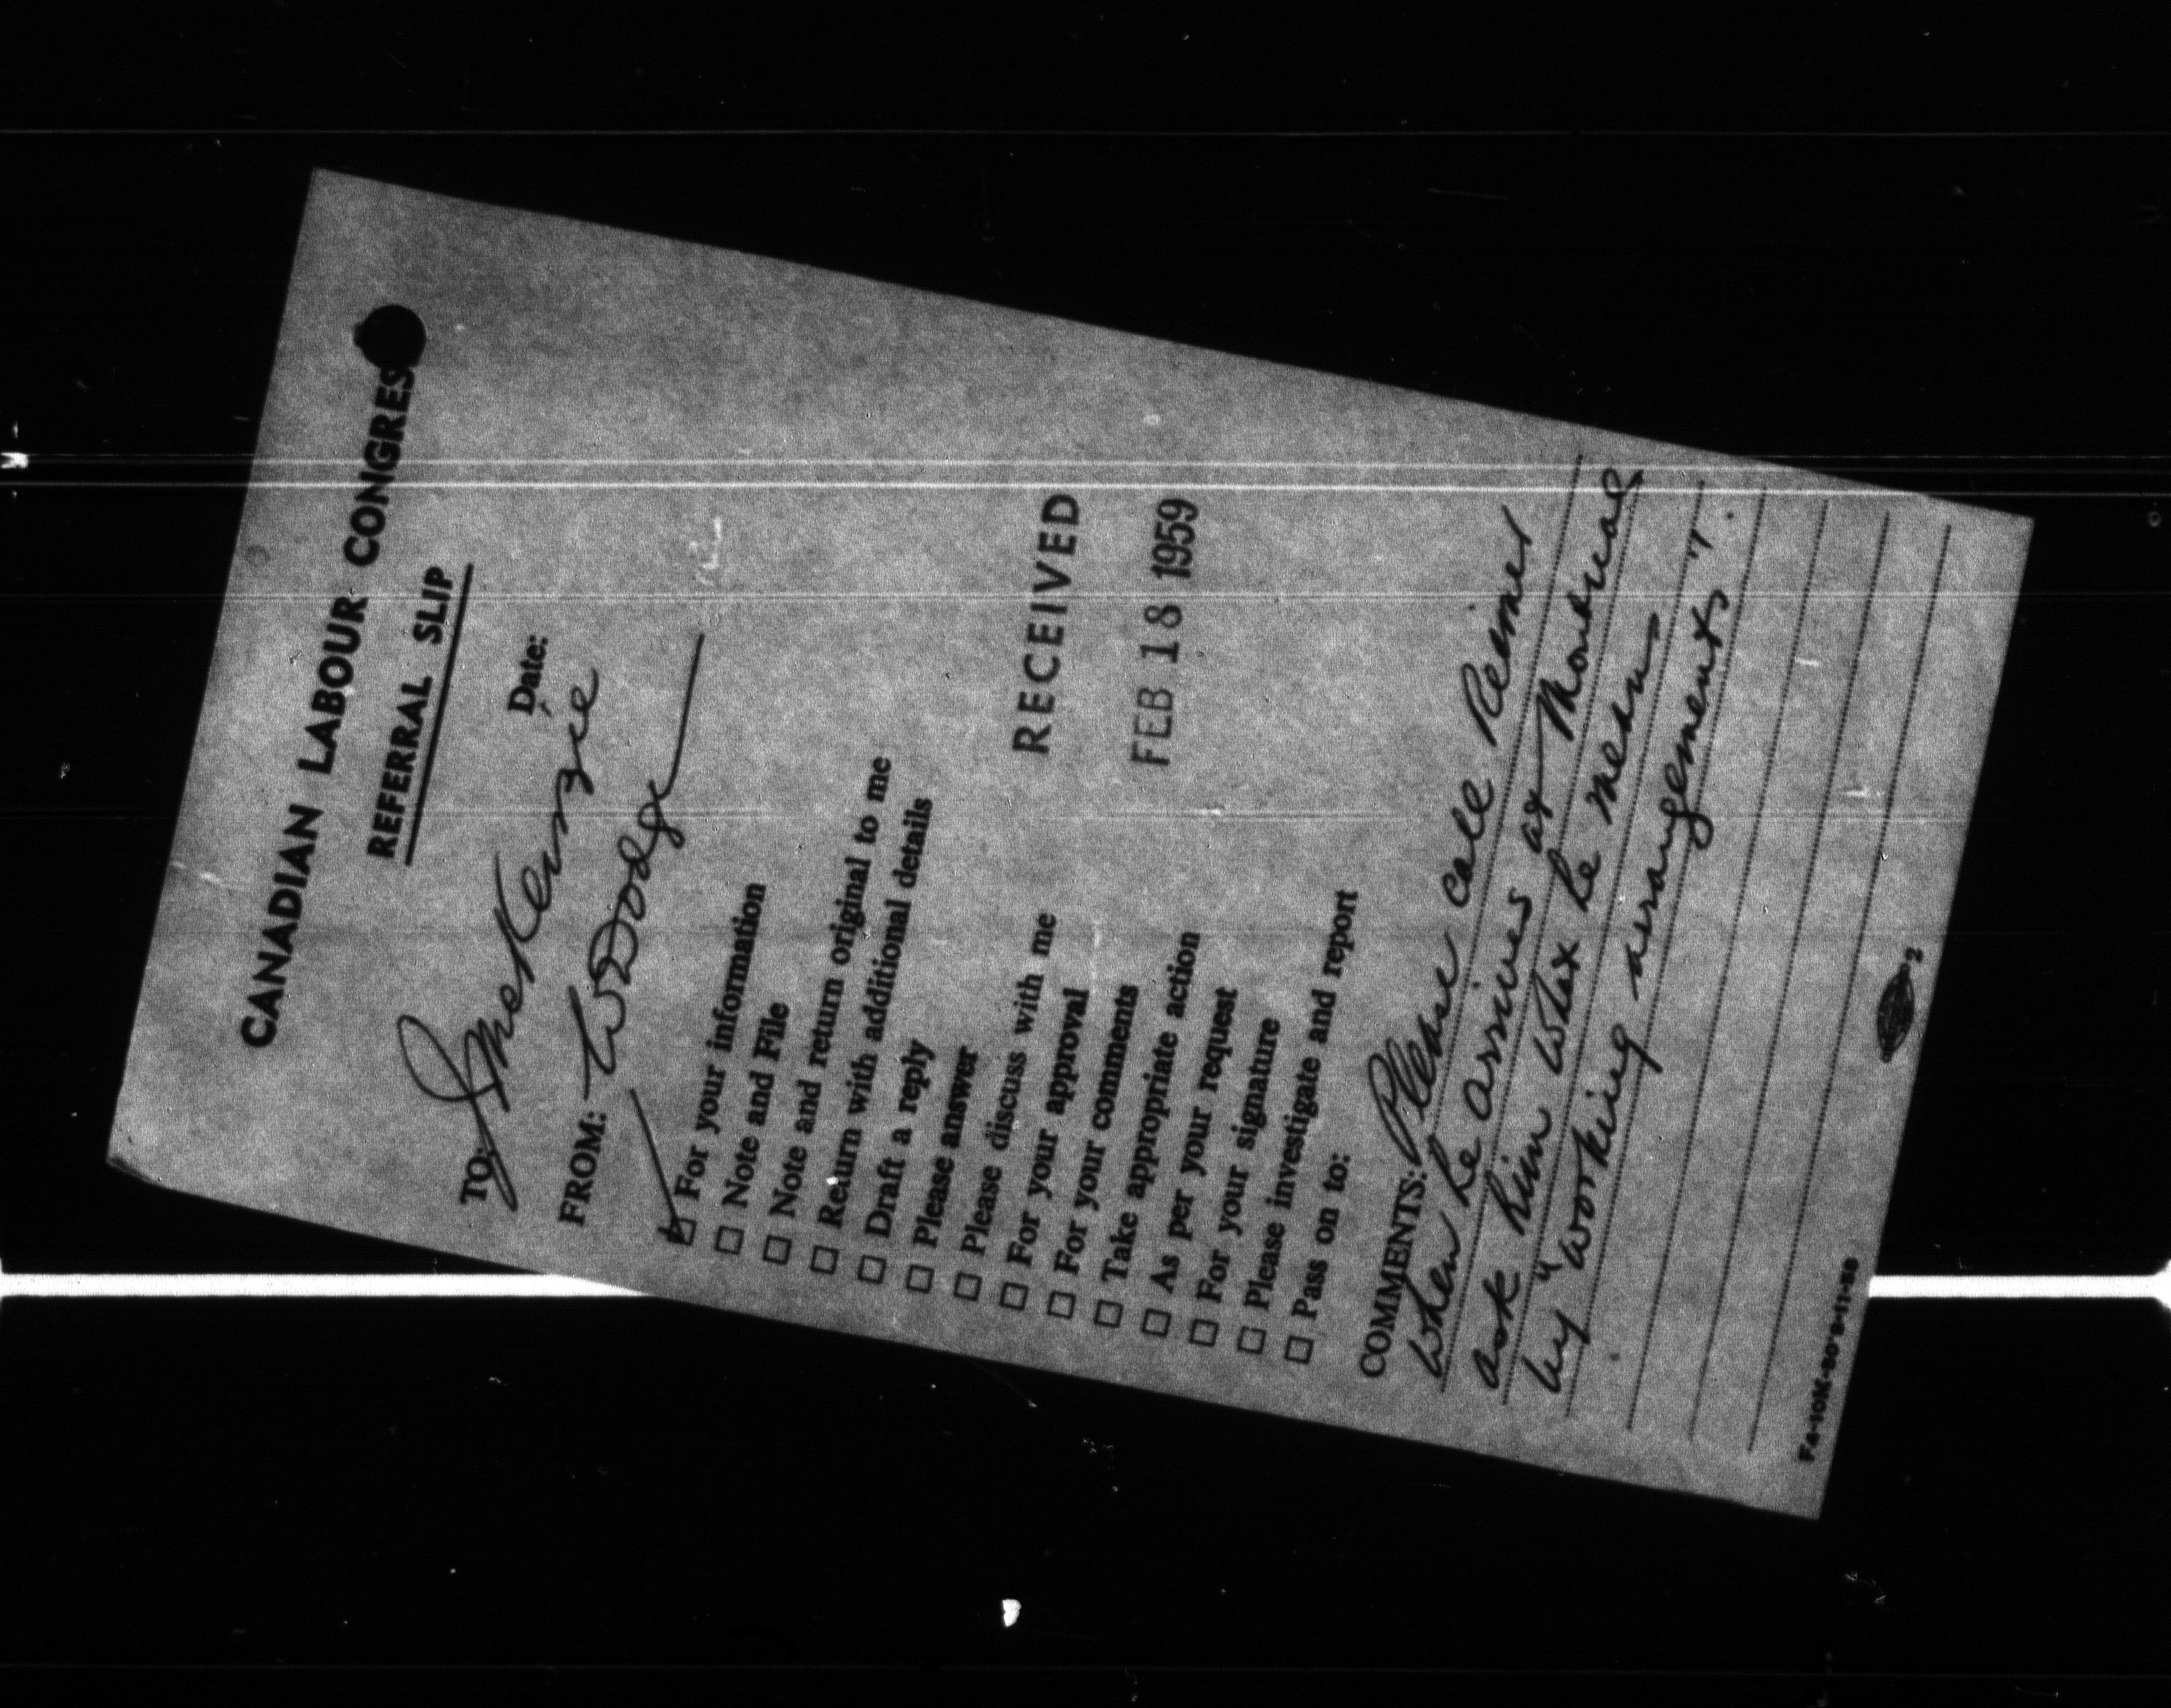 CANADIAN LABOUR CONGRESS
REFERRAL SLIP
Date:
TO: J McKenzie
FROM: W Dodge
☑ For your information
☐ Note and File
☐ Note and return original to me
☐ Return with additional details
☐ Draft a reply
☐ Please answer
☐ Please discuss with me
☐ For your approval
☐ For your comments
☐ Take appropriate action
☐ As per your request
☐ For your signature
☐ Please investigate and report
☐ Pass on to:
RECEIVED
FEB 18 1959
COMMENTS: Please call Reimer
when he arrives at Montreal
ask him what he means
by "working arrangements".
2